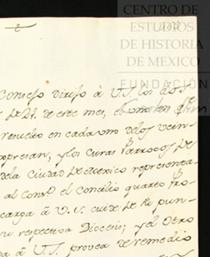 CENTRO DE
ESTUDIOS
DE HISTORIA
DE MEXICO
FUNDACIÓN
Consejo dirijo à V.S. los dos
de 21. de este mes,
resuelto en cada uno delos vein
expresan; y los Curas Parrocos de
dela Ciudad de Mexico representa
al Cons.º el concilio quarto Pro
carga à V.S. cuide de la pun
su respectiva Diocesis; y el Otro
à V.S. provea de remedio